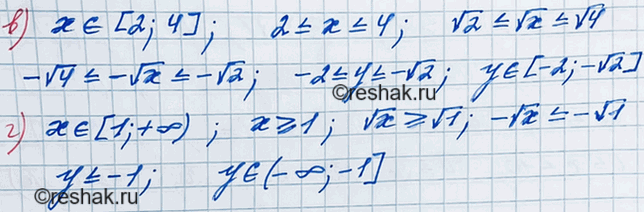 в) x ∈ [2; 4]; 2 ≤ x ≤ 4; √2 ≤ √x ≤ √4
-√4 ≤ -√x ≤ -√2; -2 ≤ y ≤ -√2; y ∈ [-2; -√2]
©reshak.ru
г) x ∈ [1; +∞); x ≥ 1; √x ≥ √1; -√x ≤ -√1
y ≤ -1; y ∈ (-∞; -1]
©reshak.ru